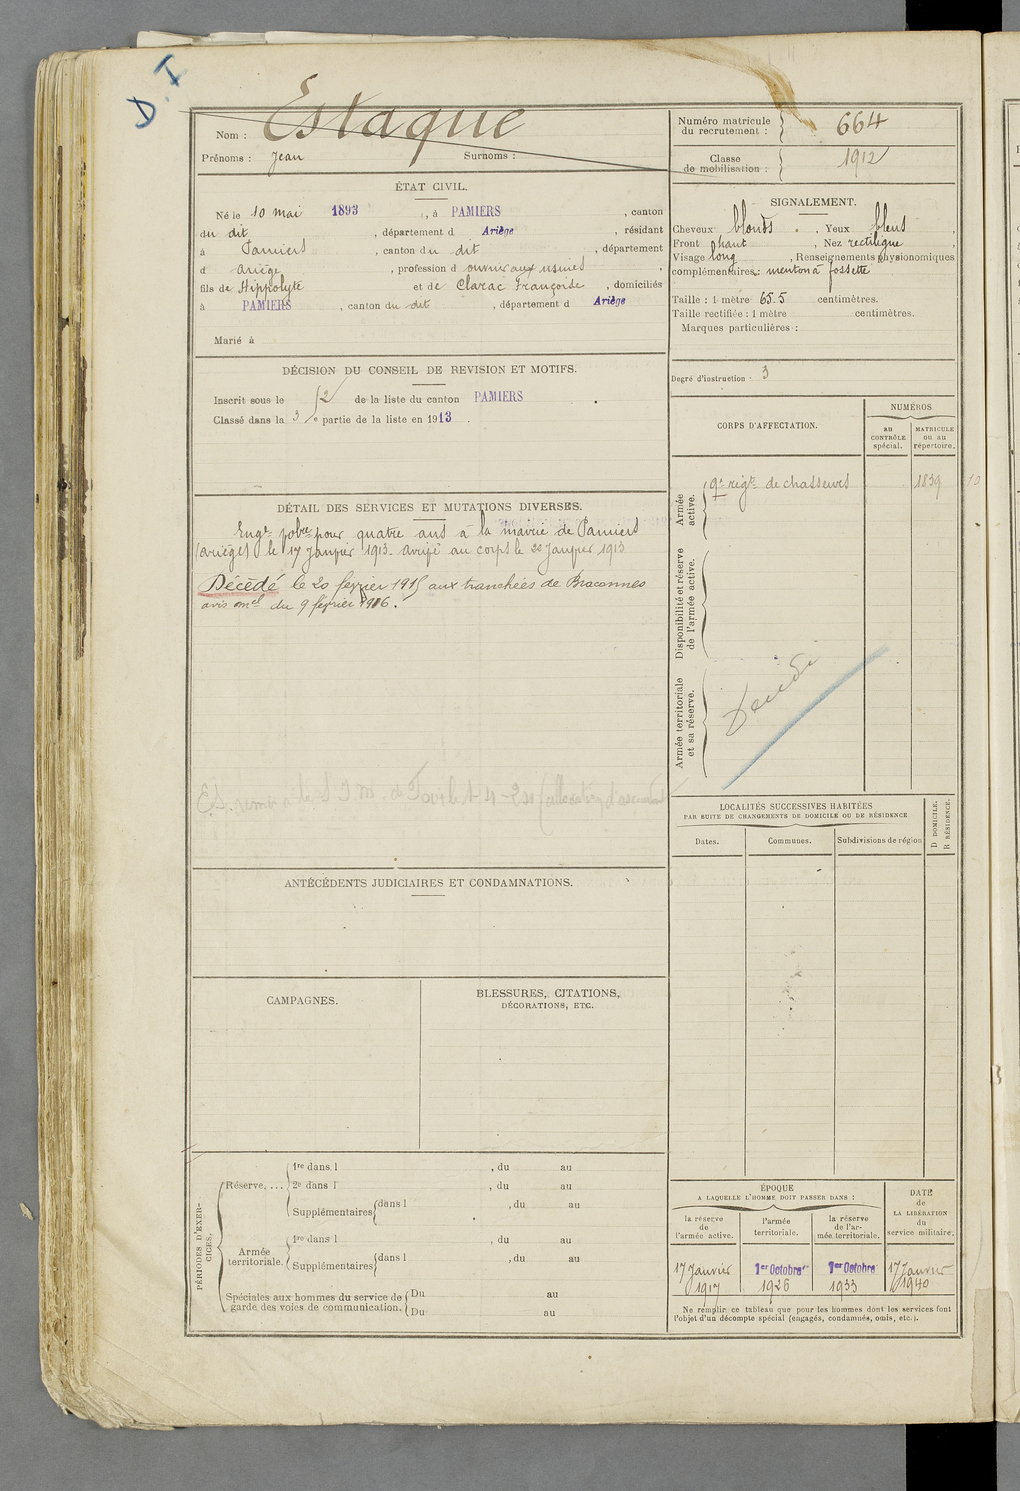 D. I
Nom : Estaque
Prénoms : Jean Surnoms :
Numéro matricule
du recrutement : 664
Classe
de mobilisation : 1912
ÉTAT CIVIL.
Né le 10 mai 1893, à PAMIERS, canton
du dit, département d Ariège, résidant
à Pamiers, canton du dit, département
d Ariège, profession d ouvrier aux usines,
fils de Hippolyte et de Clarac Françoise, domiciliés
à PAMIERS, canton du dit, département d Ariège
Marié à
SIGNALEMENT.
Cheveux blonds, Yeux bleus,
Front haut, Nez rectiligne,
Visage long, Renseignements physionomiques
complémentaires : menton à fossette
Taille : 1 mètre 65.5 centimètres.
Taille rectifiée : 1 mètre centimètres.
Marques particulières :
Degré d'instruction : 3
DÉCISION DU CONSEIL DE REVISION ET MOTIFS.
Inscrit sous le 2 de la liste du canton PAMIERS
Classé dans la 3e partie de la liste en 1913.
CORPS D'AFFECTATION.
NUMÉROS
au
CONTRÔLE
spécial.
MATRICULE
ou au
répertoire.
Armée
active.
9e régt de chasseurs 1839
Disponibilité et réserve
de l'armée active.
Armée territoriale
et sa réserve.
DÉTAIL DES SERVICES ET MUTATIONS DIVERSES.
Engé volre pour quatre ans à la mairie de Pamiers
(Ariège) le 17 Janvier 1913. arrivé au corps le 20 Janvier 1913
Décédé le 20 février 1915 aux tranchées de Braconnes
avis mel du 9 février 1916.
LOCALITÉS SUCCESSIVES HABITÉES
PAR SUITE DE CHANGEMENTS DE DOMICILE OU DE RÉSIDENCE
Dates.
Communes.
Subdivisions de région
D DOMICILE.
R RÉSIDENCE.
ANTÉCÉDENTS JUDICIAIRES ET CONDAMNATIONS.
CAMPAGNES.
BLESSURES, CITATIONS,
DÉCORATIONS, ETC.
PÉRIODES D'EXER-
CICES.
Réserve....
1re dans l , du au
2e dans l , du au
Supplémentaires dans l , du au
Armée
territoriale.
1re dans l , du au
Supplémentaires dans l , du au
Spéciales aux hommes du service de
garde des voies de communication.
Du au
Du au
ÉPOQUE
A LAQUELLE L'HOMME DOIT PASSER DANS :
la réserve
de
l'armée active.
l'armée
territoriale.
la réserve
de l'ar-
mée territoriale.
DATE
de
LA LIBÉRATION
du
service militaire.
17 Janvier
1917
1er Octobre
1926
1er Octobre
1933
17 Janvier
1940
Ne remplir ce tableau que pour les hommes dont les services font
l'objet d'un décompte spécial (engagés, condamnés, omis, etc.).